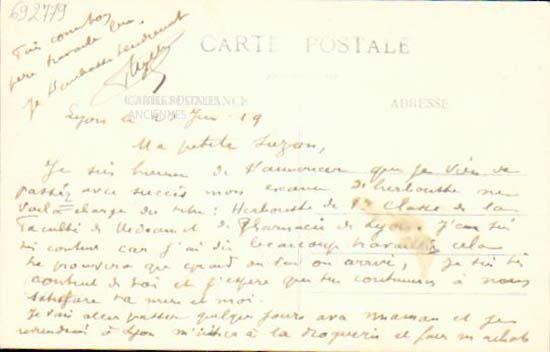 692779
Fais comme ton
père travaille que
je t'embrasse tendrement
CARTE POSTALE
CARTES POSTALES
ANCIENNES
CORRESPONDANCE
ADRESSE
Lyon le Juin 19
Ma petite Suzon,
Je suis heureux de t'annoncer que je viens de
passer avec succès mon examen d'herboriste me
voilà chargé du titre : Herboriste de 1re Classe de la
Faculté de Médecine et Pharmacie de Lyon. J'en suis
content car j'ai dû beaucoup travailler cela
te prouvera que quand on veut on arrive, Je suis très
content de toi et j'espère que tu continueras à nous
satisfaire ta mère et moi.
Je vais aller passer quelques jours avec maman et je
reviendrai à Lyon à la droguerie et faire mes achats